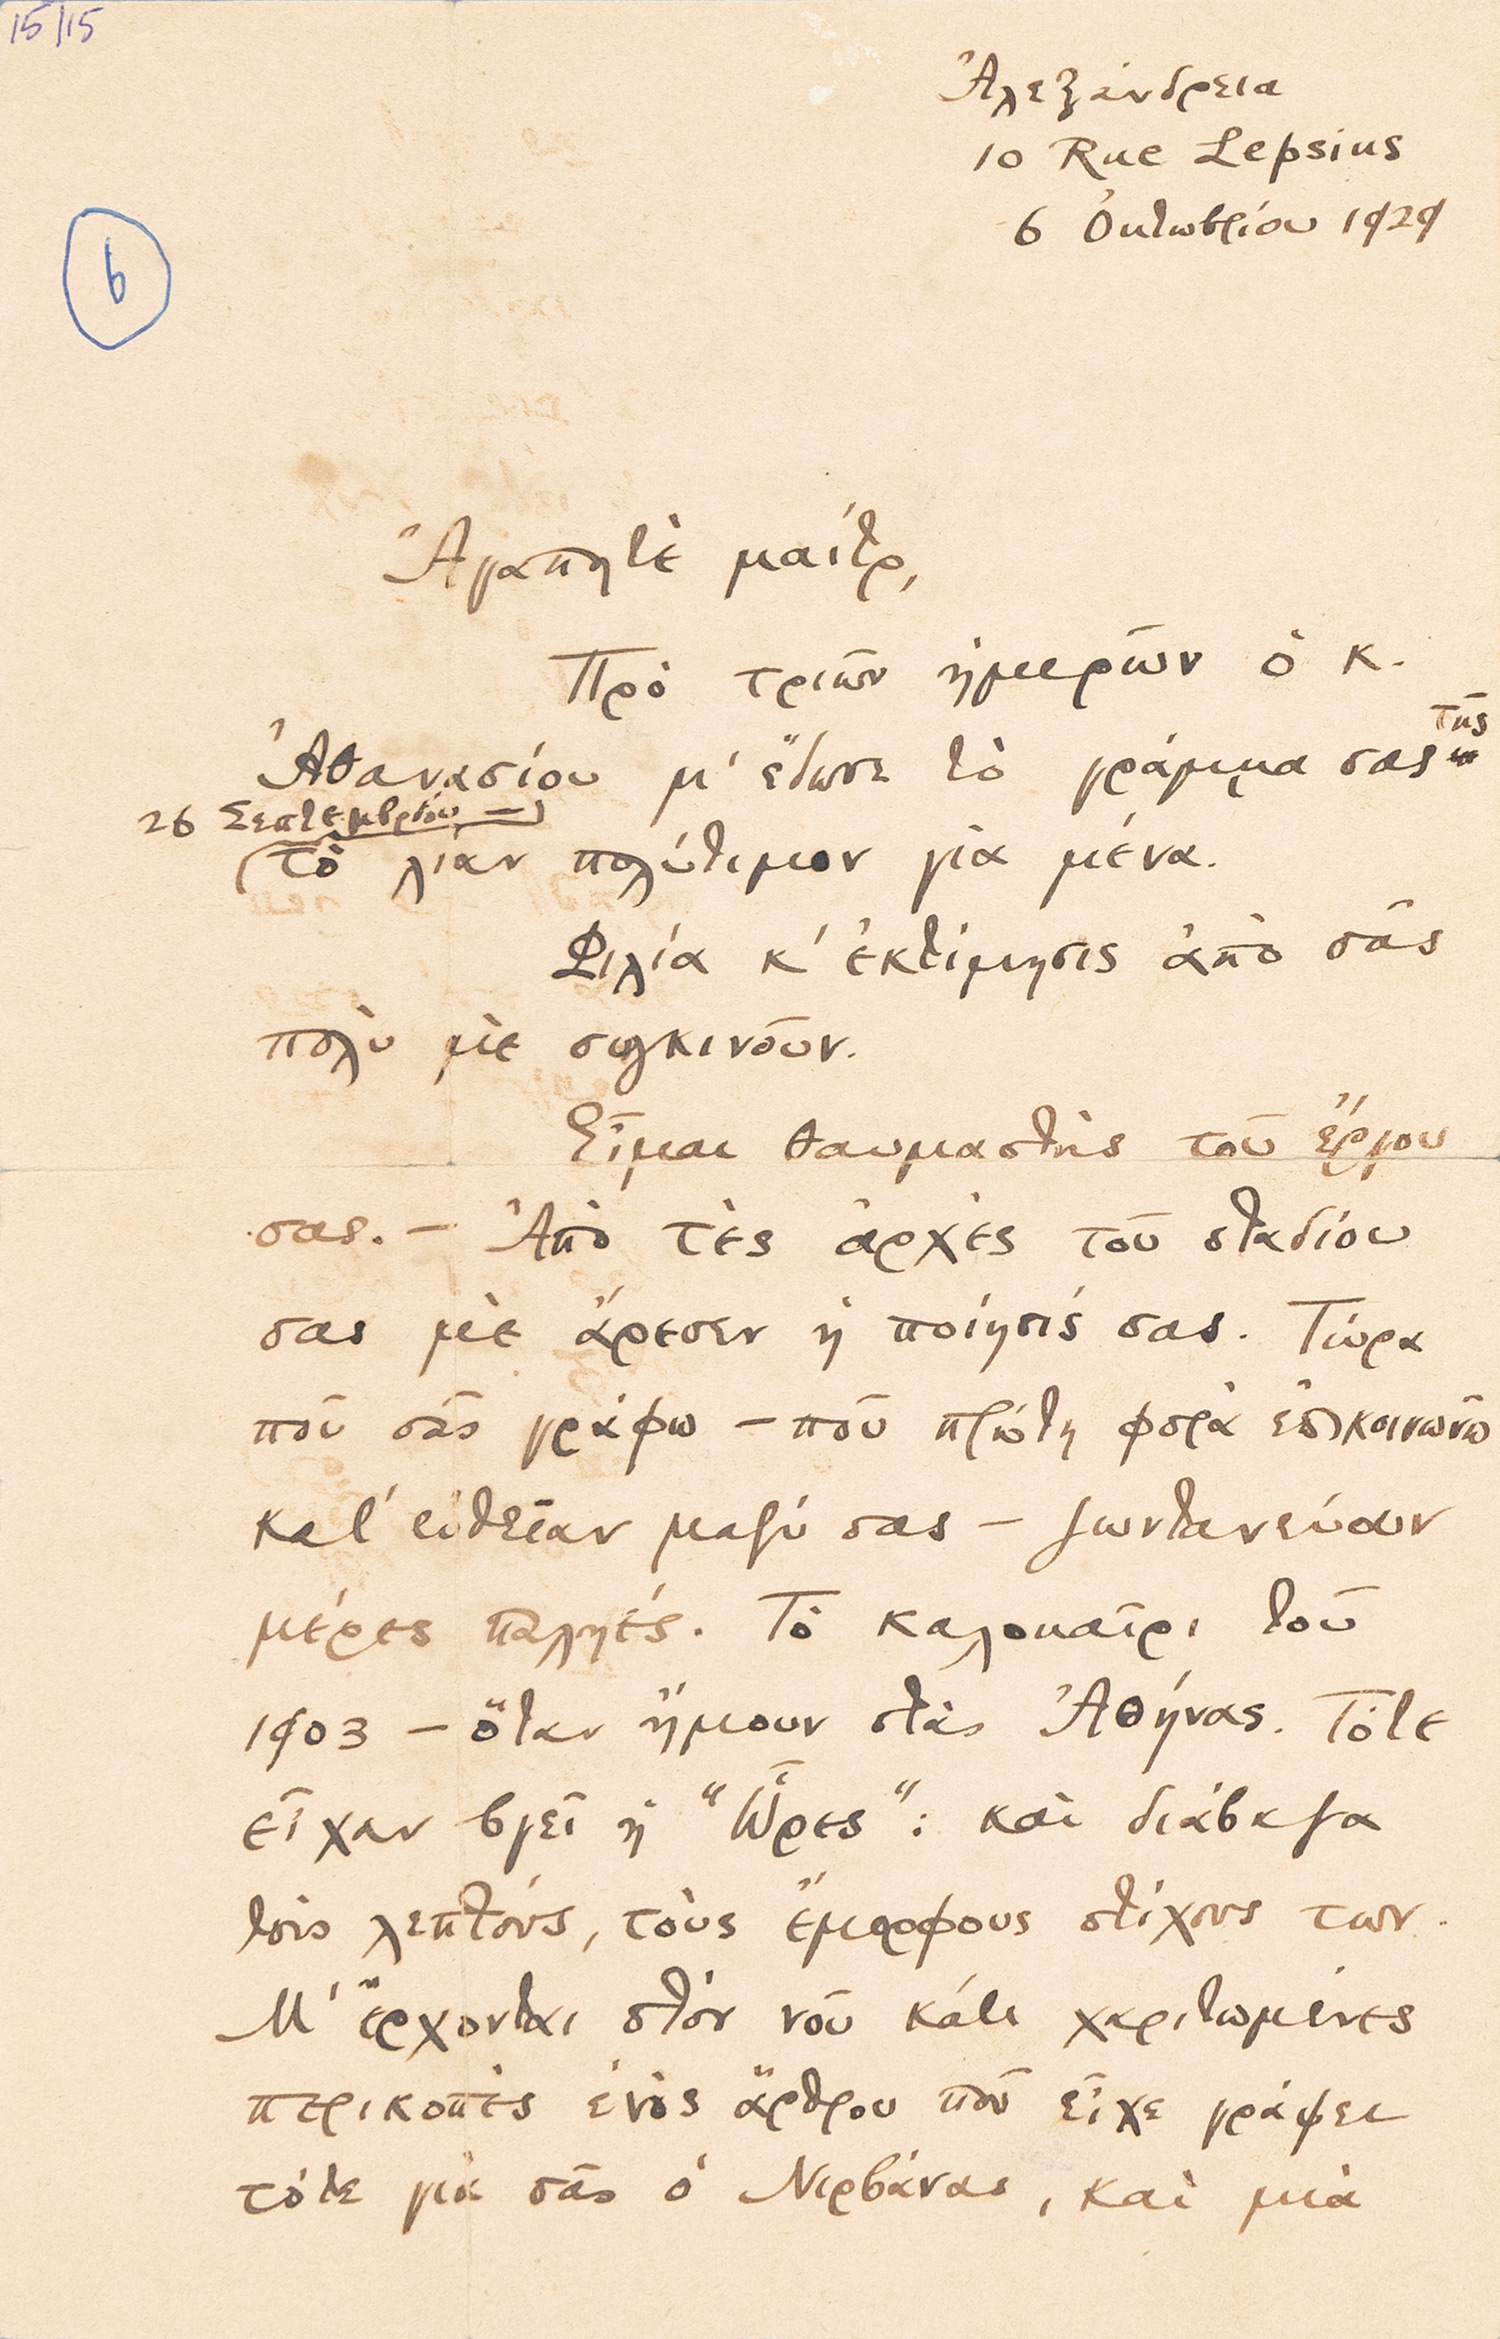 15/15
Ἀλεξάνδρεια
10 Rue Lepsius
6 Ὀκτωβρίου 1929
6
Ἀγαπητὲ μαίτρ,
Πρὸ τριῶν ἡμερῶν ὁ κ.
Ἀθανασίου μ' ἔδωσε τὸ γράμμα σας τῆς
26 Σεπτεμβρίου —
τὸ λίαν πολύτιμον γιὰ μένα.
Φιλία κ' ἐκτίμησις ἀπὸ σᾶς
πολὺ μὲ συγκινοῦν.
Εἶμαι θαυμαστὴς τοῦ ἔργου
σας. — Ἀπὸ τὲς ἀρχὲς τοῦ σταδίου
σας μὲ ἄρεσεν ἡ ποίησίς σας. Τώρα
ποῦ σᾶς γράφω — ποῦ πρώτη φορὰ ἐπικοινωνῶ
κατ' εὐθεῖαν μαζύ σας — ζωντανεύουν
μέρες παληές. Τὸ καλοκαῖρι τοῦ
1903 — ὅταν ἤμουν στὰς Ἀθήνας. Τότε
εἶχαν βγεῖ ἡ "Ὧρες": καὶ διάβαζα
τοὺς λεπτούς, τοὺς ἔμορφους στίχους των.
Μ' ἔρχονται στὸν νοῦ κάτι χαριτωμένες
περικοπὲς ἑνὸς ἄρθρου ποῦ εἶχε γράψει
τότε γιὰ σᾶς ὁ Νιρβάνας, καὶ μιὰ